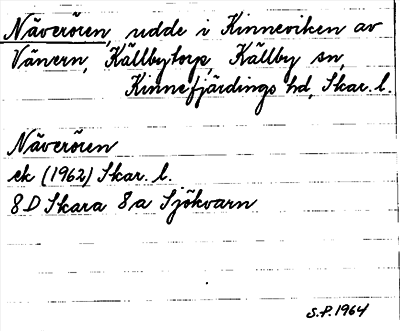 Näverören, udde i Kinneviken av
Vänern, Källbytorp, Källby sn,
Kinnefjärdings hd, Skar. l.
Näverören
ek (1962) Skar. l.
8 D Skara 8 a Sjökvarn
S.P. 1964